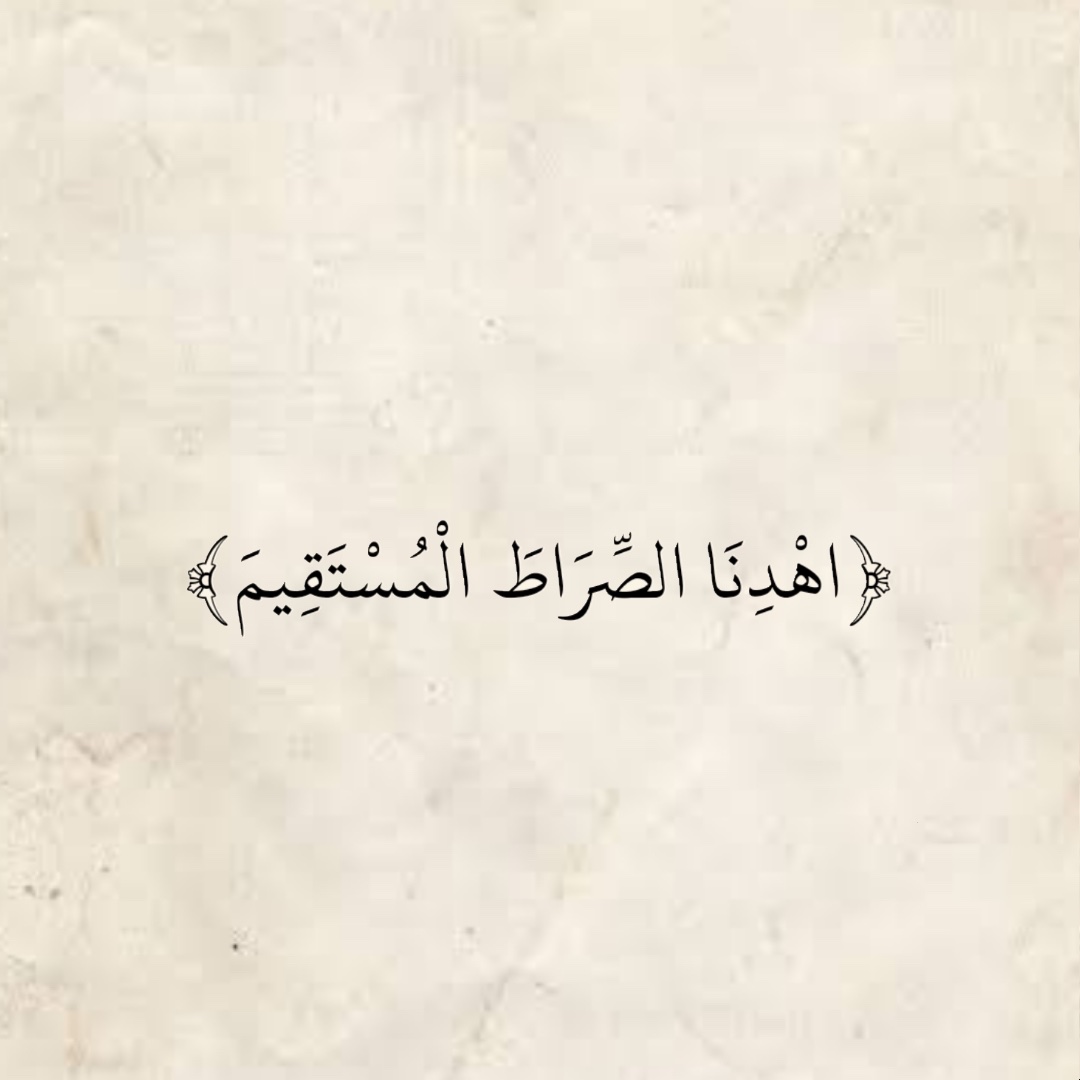 ﴿اهْدِنَا الصِّرَاطَ الْمُسْتَقِيمَ﴾